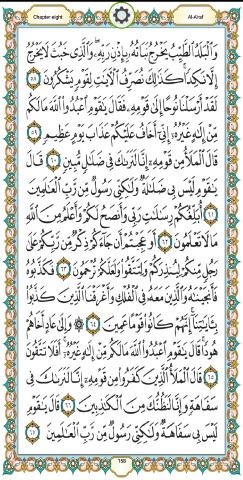 Chapter eight
Al-A'raf
وَالْبَلَدُ الطَّيِّبُ يَخْرُجُ نَبَاتُهُ بِإِذْنِ رَبِّهِ وَالَّذِي خَبُثَ لَا يَخْرُجُ
إِلَّا نَكِدًا كَذَٰلِكَ نُصَرِّفُ الْآيَاتِ لِقَوْمٍ يَشْكُرُونَ ٥٨
لَقَدْ أَرْسَلْنَا نُوحًا إِلَىٰ قَوْمِهِ فَقَالَ يَا قَوْمِ اعْبُدُوا اللَّهَ مَا لَكُم
مِّنْ إِلَٰهٍ غَيْرُهُ إِنِّي أَخَافُ عَلَيْكُمْ عَذَابَ يَوْمٍ عَظِيمٍ ٥٩
قَالَ الْمَلَأُ مِن قَوْمِهِ إِنَّا لَنَرَاكَ فِي ضَلَالٍ مُّبِينٍ ٦٠ قَالَ
يَا قَوْمِ لَيْسَ بِي ضَلَالَةٌ وَلَٰكِنِّي رَسُولٌ مِّن رَّبِّ الْعَالَمِينَ
٦١ أُبَلِّغُكُمْ رِسَالَاتِ رَبِّي وَأَنصَحُ لَكُمْ وَأَعْلَمُ مِنَ اللَّهِ
مَا لَا تَعْلَمُونَ ٦٢ أَوَعَجِبْتُمْ أَن جَاءَكُمْ ذِكْرٌ مِّن رَّبِّكُمْ عَلَىٰ
رَجُلٍ مِّنكُمْ لِيُنذِرَكُمْ وَلِتَتَّقُوا وَلَعَلَّكُمْ تُرْحَمُونَ ٦٣ فَكَذَّبُوهُ
فَأَنجَيْنَاهُ وَالَّذِينَ مَعَهُ فِي الْفُلْكِ وَأَغْرَقْنَا الَّذِينَ كَذَّبُوا
بِآيَاتِنَا إِنَّهُمْ كَانُوا قَوْمًا عَمِينَ ٦٤ ۞ وَإِلَىٰ عَادٍ أَخَاهُمْ
هُودًا قَالَ يَا قَوْمِ اعْبُدُوا اللَّهَ مَا لَكُم مِّنْ إِلَٰهٍ غَيْرُهُ أَفَلَا تَتَّقُونَ
٦٥ قَالَ الْمَلَأُ الَّذِينَ كَفَرُوا مِن قَوْمِهِ إِنَّا لَنَرَاكَ فِي
سَفَاهَةٍ وَإِنَّا لَنَظُنُّكَ مِنَ الْكَاذِبِينَ ٦٦ قَالَ يَا قَوْمِ
لَيْسَ بِي سَفَاهَةٌ وَلَٰكِنِّي رَسُولٌ مِّن رَّبِّ الْعَالَمِينَ ٦٧
158